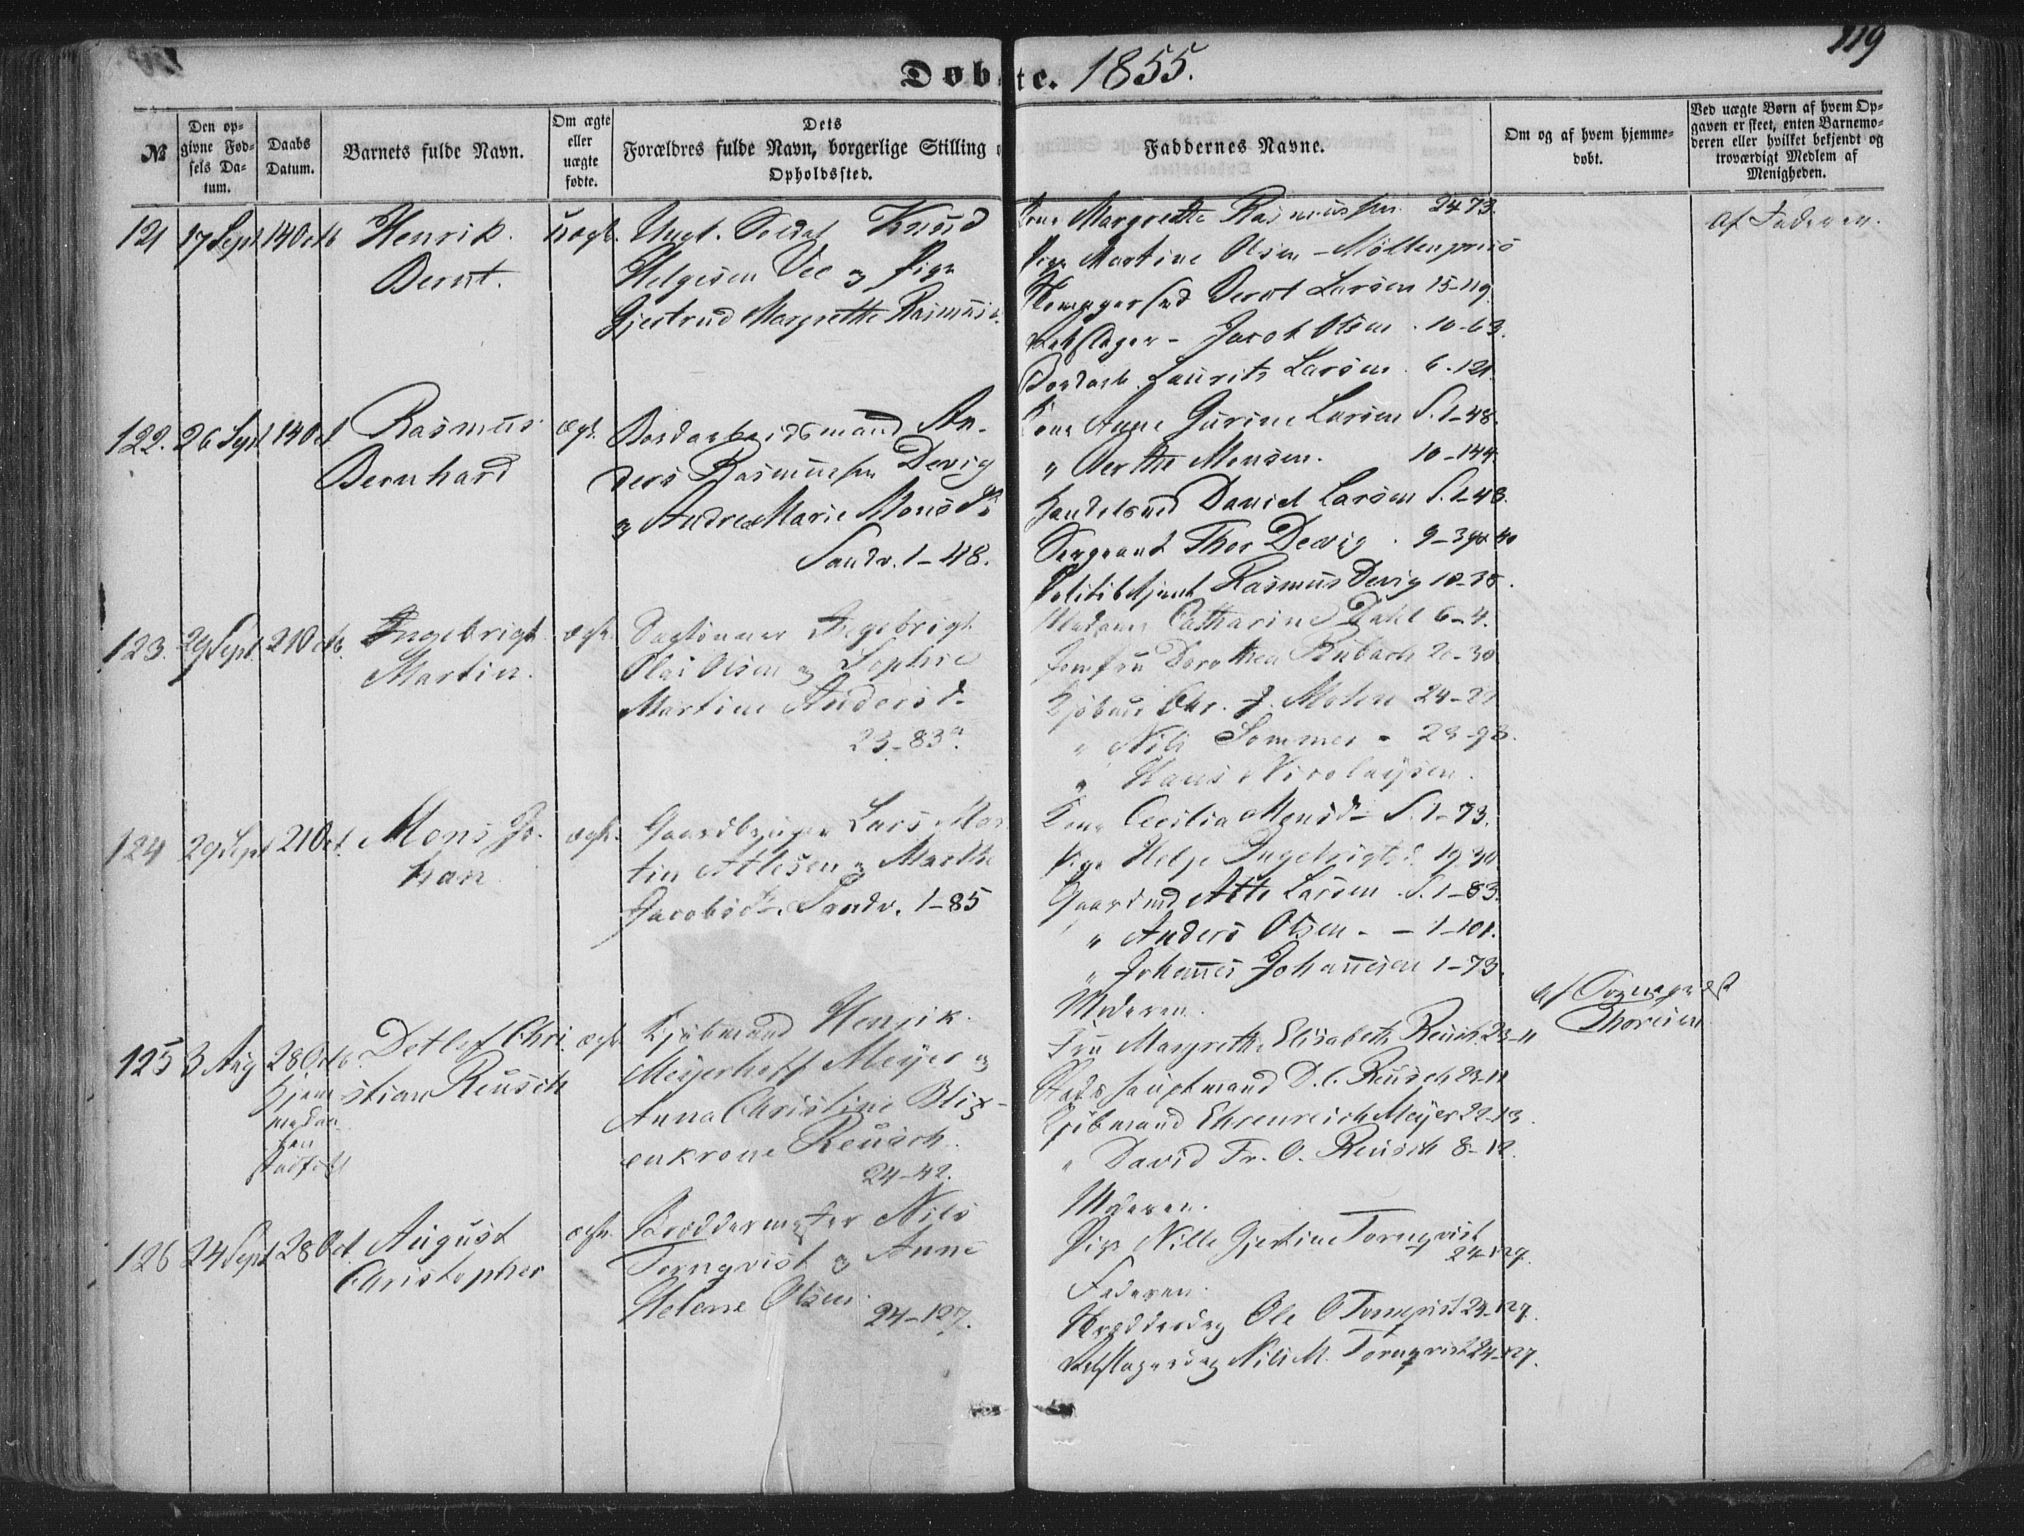 119
Døbte. 1855.
№
Den opgivne Fødsels Datum.
Daabs Datum.
Barnets fulde Navn.
Om ægte eller uægte fødte.
Dets Forældres fulde Navn, borgerlige Stilling o Opholdssted.
Faddernes Navne.
Om og af hvem hjemmedøbt.
Ved uægte Børn af hvem Opgaven er skeet, enten Barnemoderen eller hvilket bekjendt og troværdigt Medlem af Menigheden.
121 17 Sept 14 Octb Henrik Bernt. uægt.
Ungk. Soldat Knud
Helgesen Vee og Pige
Gjertrud Margrethe Rasmus
Kone Margrethe Rasmussen 24-73.
Pige Martine Olsen - Møllenpris
Bernt Larsen 15-119.
Jacob Olsen 10-63.
Bordarb. Laurits Larsen 6-121.
af Faderen.
122. 26 Sept 14 Oct Rasmus Bernhard ægt.
Bordarbeidsmand An-
ders Rasmussen Devig
og Andrea Marie Monsd.
Sandv. 1-48.
Kone Anne Gurine Larsen S. 1-48.
" Berthe Monsen. 10-144.
Handelsmd Daniel Larsen S. 1-48.
Sergeant Thor Devig. 9-
Politibetjent Rasmus Devig 10-38.
123. 29 Sept. 21 Octb. Ingebrigt Martin. ægt.
Ingebrigt
Olai Olsen og Sophie
Martine Andersd.
23-83a.
Madame Catharine Dahl 6-4.
Jomfru Dorothea Rubach 20-30
Kjøbmd Chr. J. Mohn 24-21
" Nils Sommer - 23-98.
" Hans Nicolaysen.
124 29 Sept 21 Oct. Mons Johan ægt.
Gaardbruger Lars Mar
tin Atlesen og Marthe
Jacobsd. Sandv. 1-85
Kone Cecilia Monsd. S. 1-73.
Pige Helge Ingebrigtsd. 19-30
Gaardmd Atle Larsen. S. 1-83.
" Anders Olsen. - 1-101.
" Johannes Johannesen 1-73.
125 3 Aug 28 Octb. Detlef Christian Reusch ægt.
Kjøbmand Henrik
Meyerhoff Meyer og
Anna Christine Blix-
enkrone Reusch.
24-42.
Moderen.
Fru Margrethe Elisabeth Reusch 23-11
Stadshauptmand D. C. Reusch 23-11
Kjøbmand Ehrenreich Meyer 22-13.
" David Fr. O. Reusch 8-12.
af Sognepræst
126 24 Sept 28 Oct. August Christopher ægt.
Bræddermester Nils
Tornqvist og Anne
Helene Olsen.
24-127.
Moderen.
Pige Nille Gjertine Tornqvist
24-127.
Faderen.
Ole O Tornqvist 24-127.
Nils M. Tornqvist 24-127.